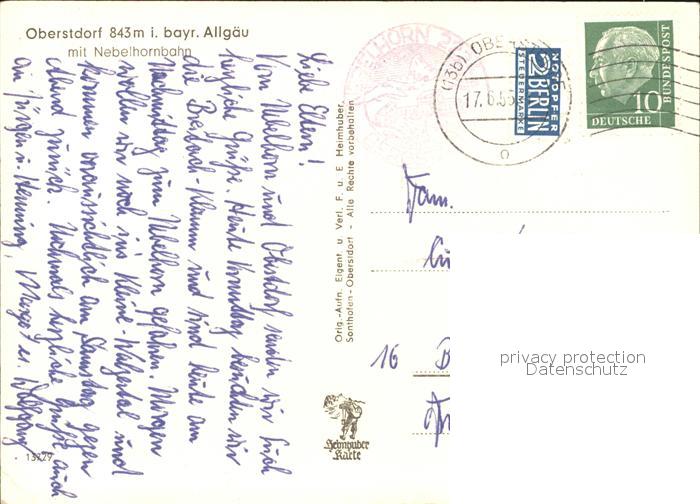 Oberstdorf 843m i. bayr. Allgäu
mit Nebelhornbahn
Liebe Eltern!
Vom Nebelhorn und Oberstdorf senden wir Euch
herzliche Grüße. Heute Vormittag besuchten wir
die Breitach-Klamm und sind heute am
Nachmittag zum Nebelhorn gefahren. Morgen
wollen wir noch ins Kleine-Walsertal und
kommen voraussichtlich am Samstag gegen
Abend zurück. Nochmals herzliche Grüße auch
an Jürgen u. Henning, Margot u. Wolfgang
13729
Orig.-Aufn. Eigent. u. Verl. F. u. E Heimhuber,
Sonthofen-Oberstdorf - Alle Rechte vorbehalten
Heimhuber
Karte
(13b) OBE
17.6.55
NOTOPFER
2 BERLIN
STEUERMARKE
10
DEUTSCHE
BUNDESPOST
Fam.
16 B
privacy protection
Datenschutz